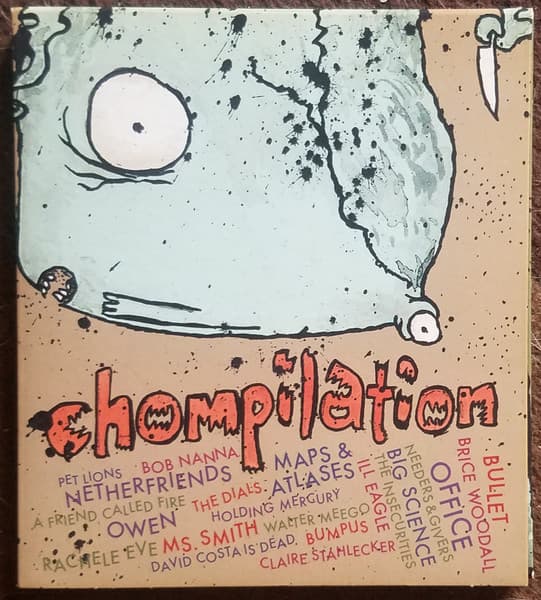 chompilation
PET LIONS
BOB NANNA
NETHERFRIENDS
MAPS &
ATLASES
A FRIEND CALLED FIRE
THE DIALS
OWEN
HOLDING MERCURY
RACHELE EVE
MS. SMITH
WALTER MEEGO
DAVID COSTA IS DEAD
BUMPUS
CLAIRE STAHLECKER
ILL EAGLE
THE INSECURITIES
BIG SCIENCE
NEEDERS & GIVERS
OFFICE
BRICE WOODALL
BULLET